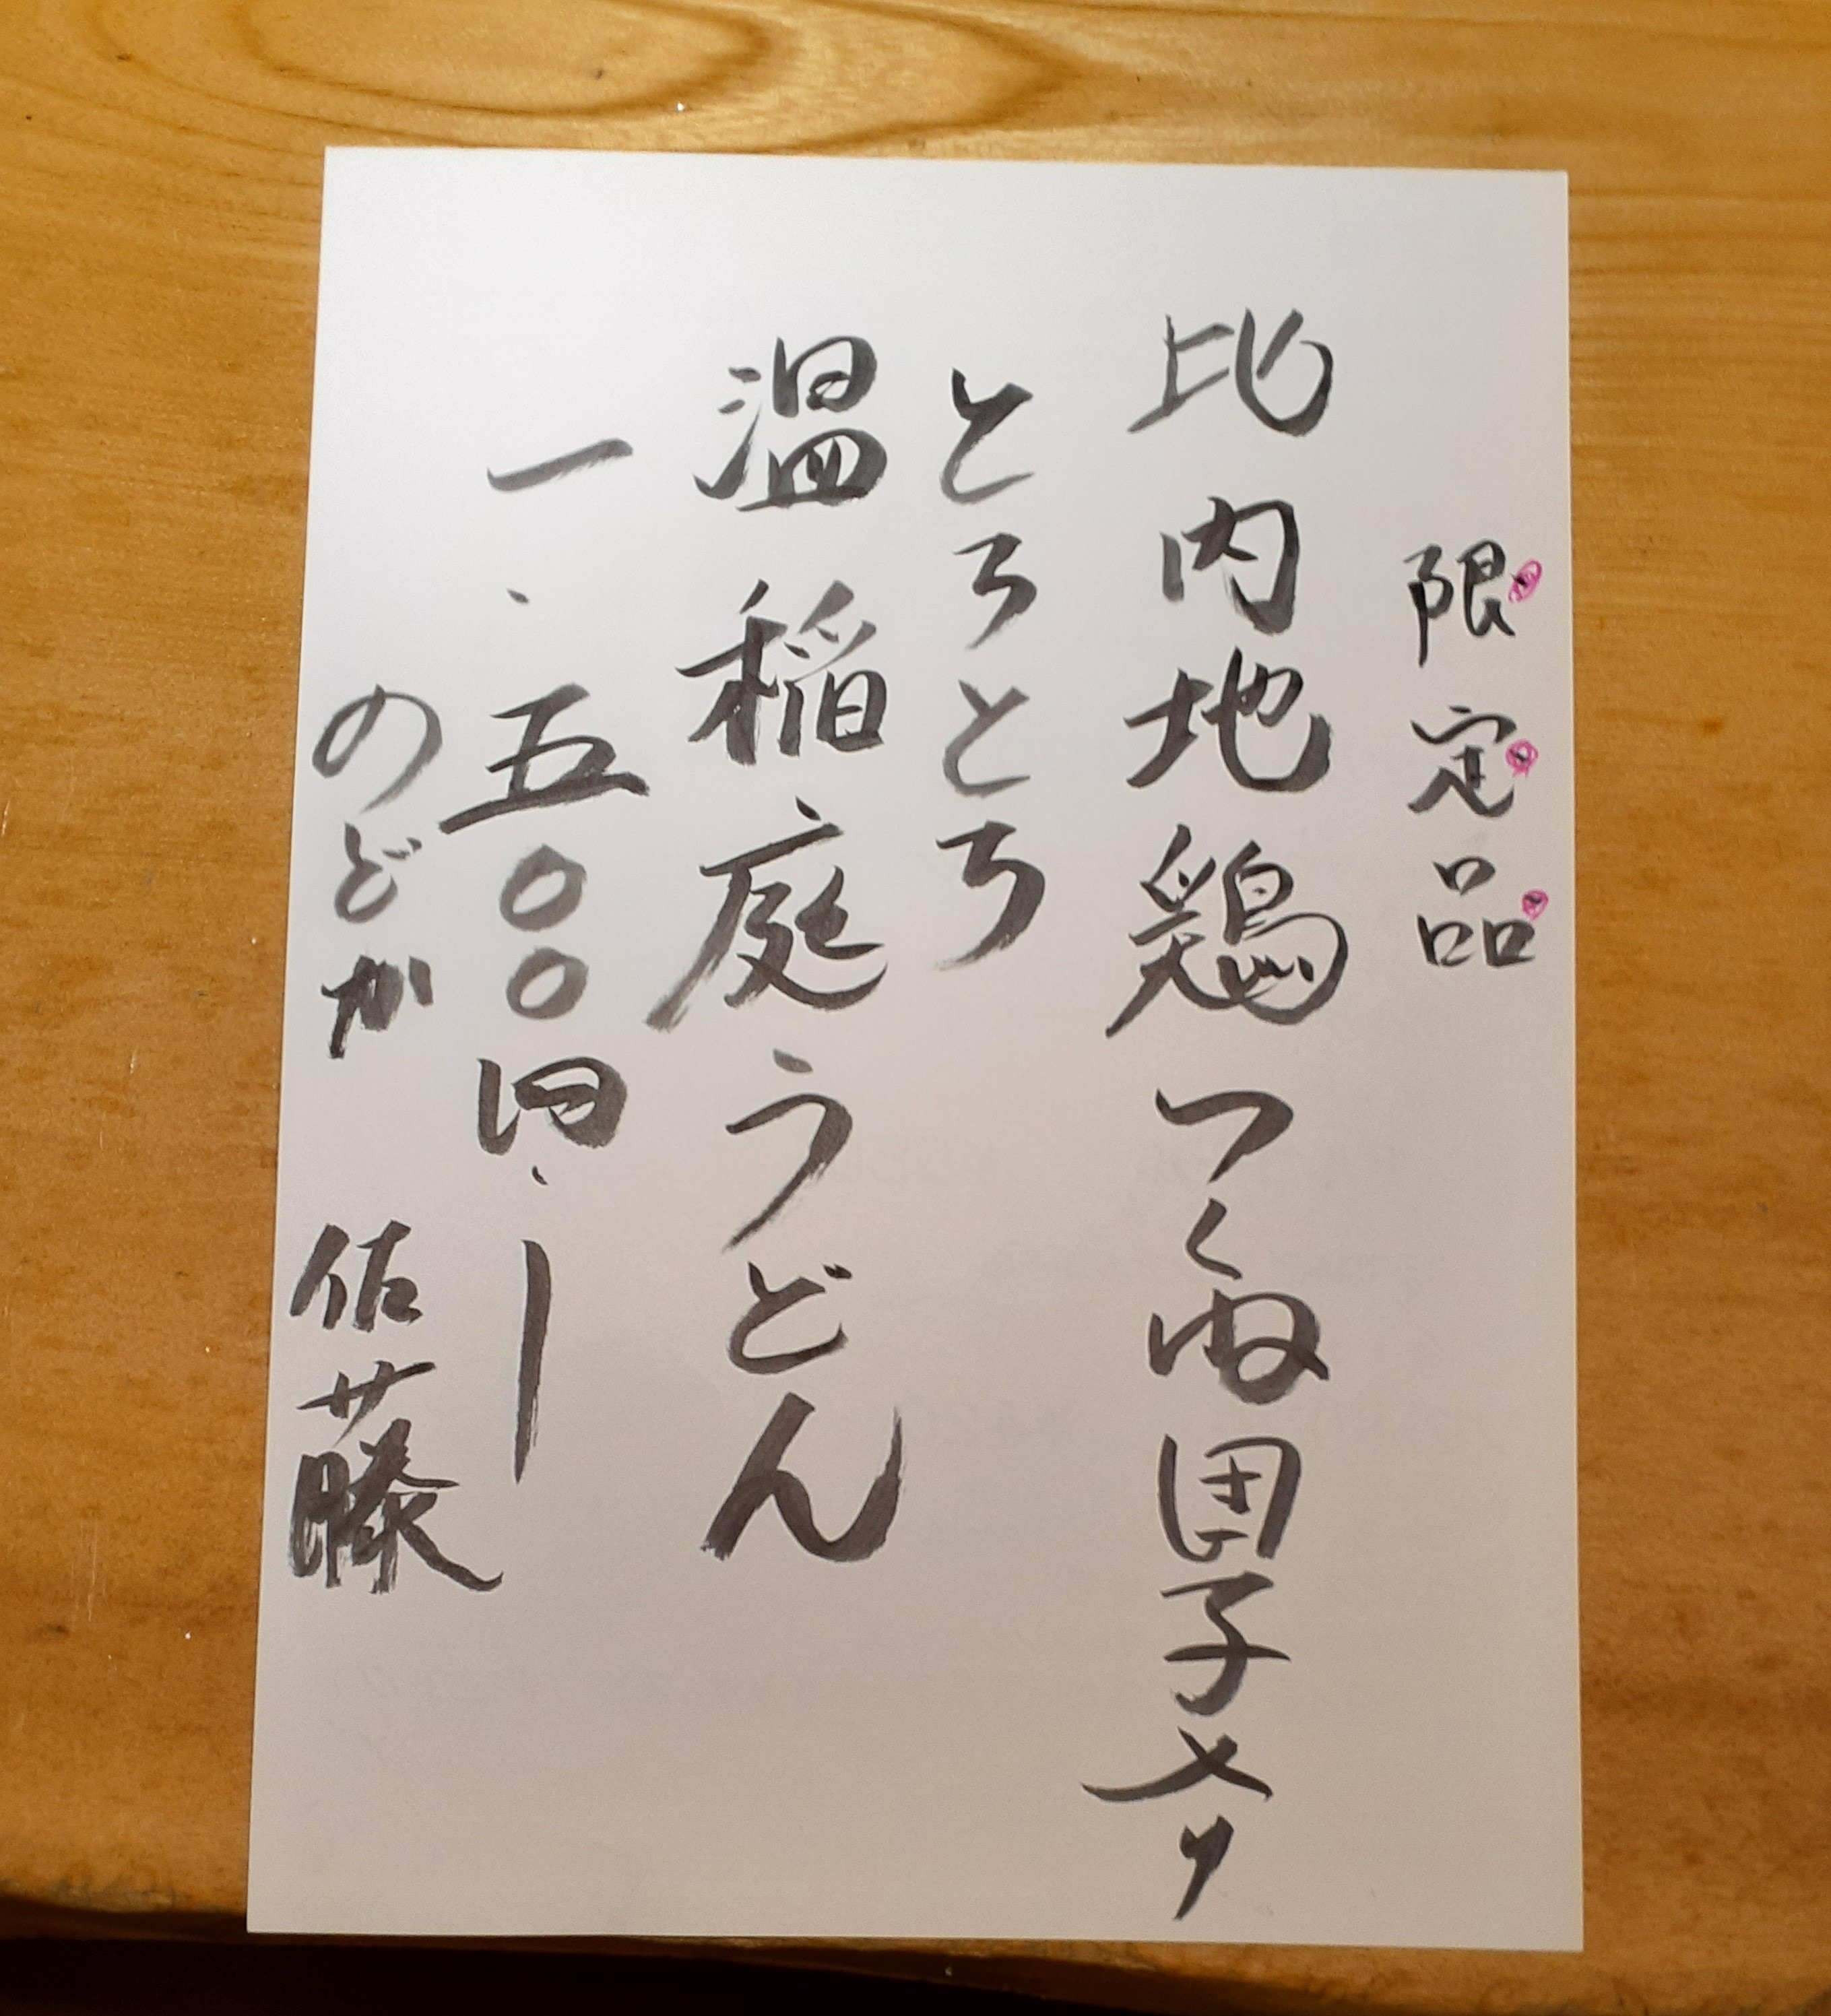 限定品
比内地鶏つくね団子入り
とろとろ
温稲庭うどん
一、五〇〇円、ー
のどか 佐藤